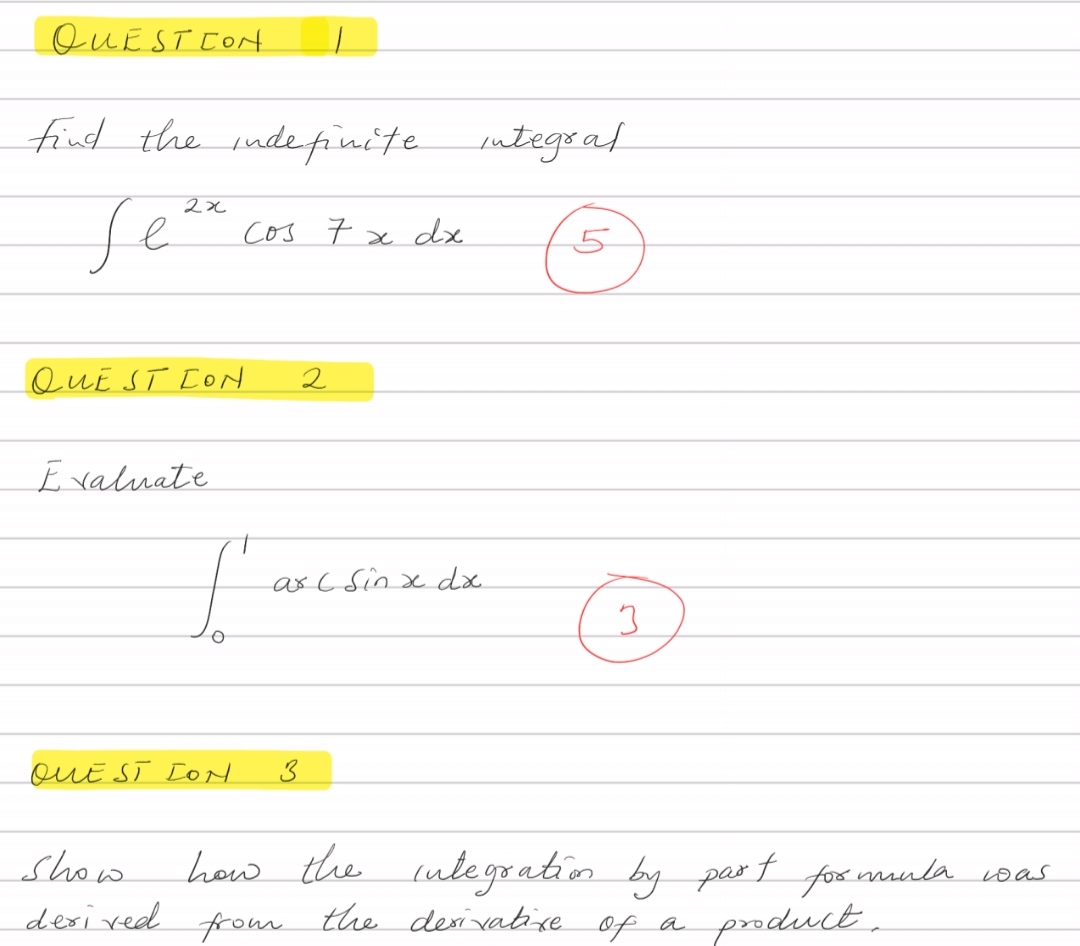 QUESTION 1
find the indefinite integral
∫ e^{2x} cos 7x dx 5
QUESTION 2
Evaluate
∫_0^1 arcsin x dx 3
QUESTION 3
Show how the integration by part formula was
derived from the derivative of a product.